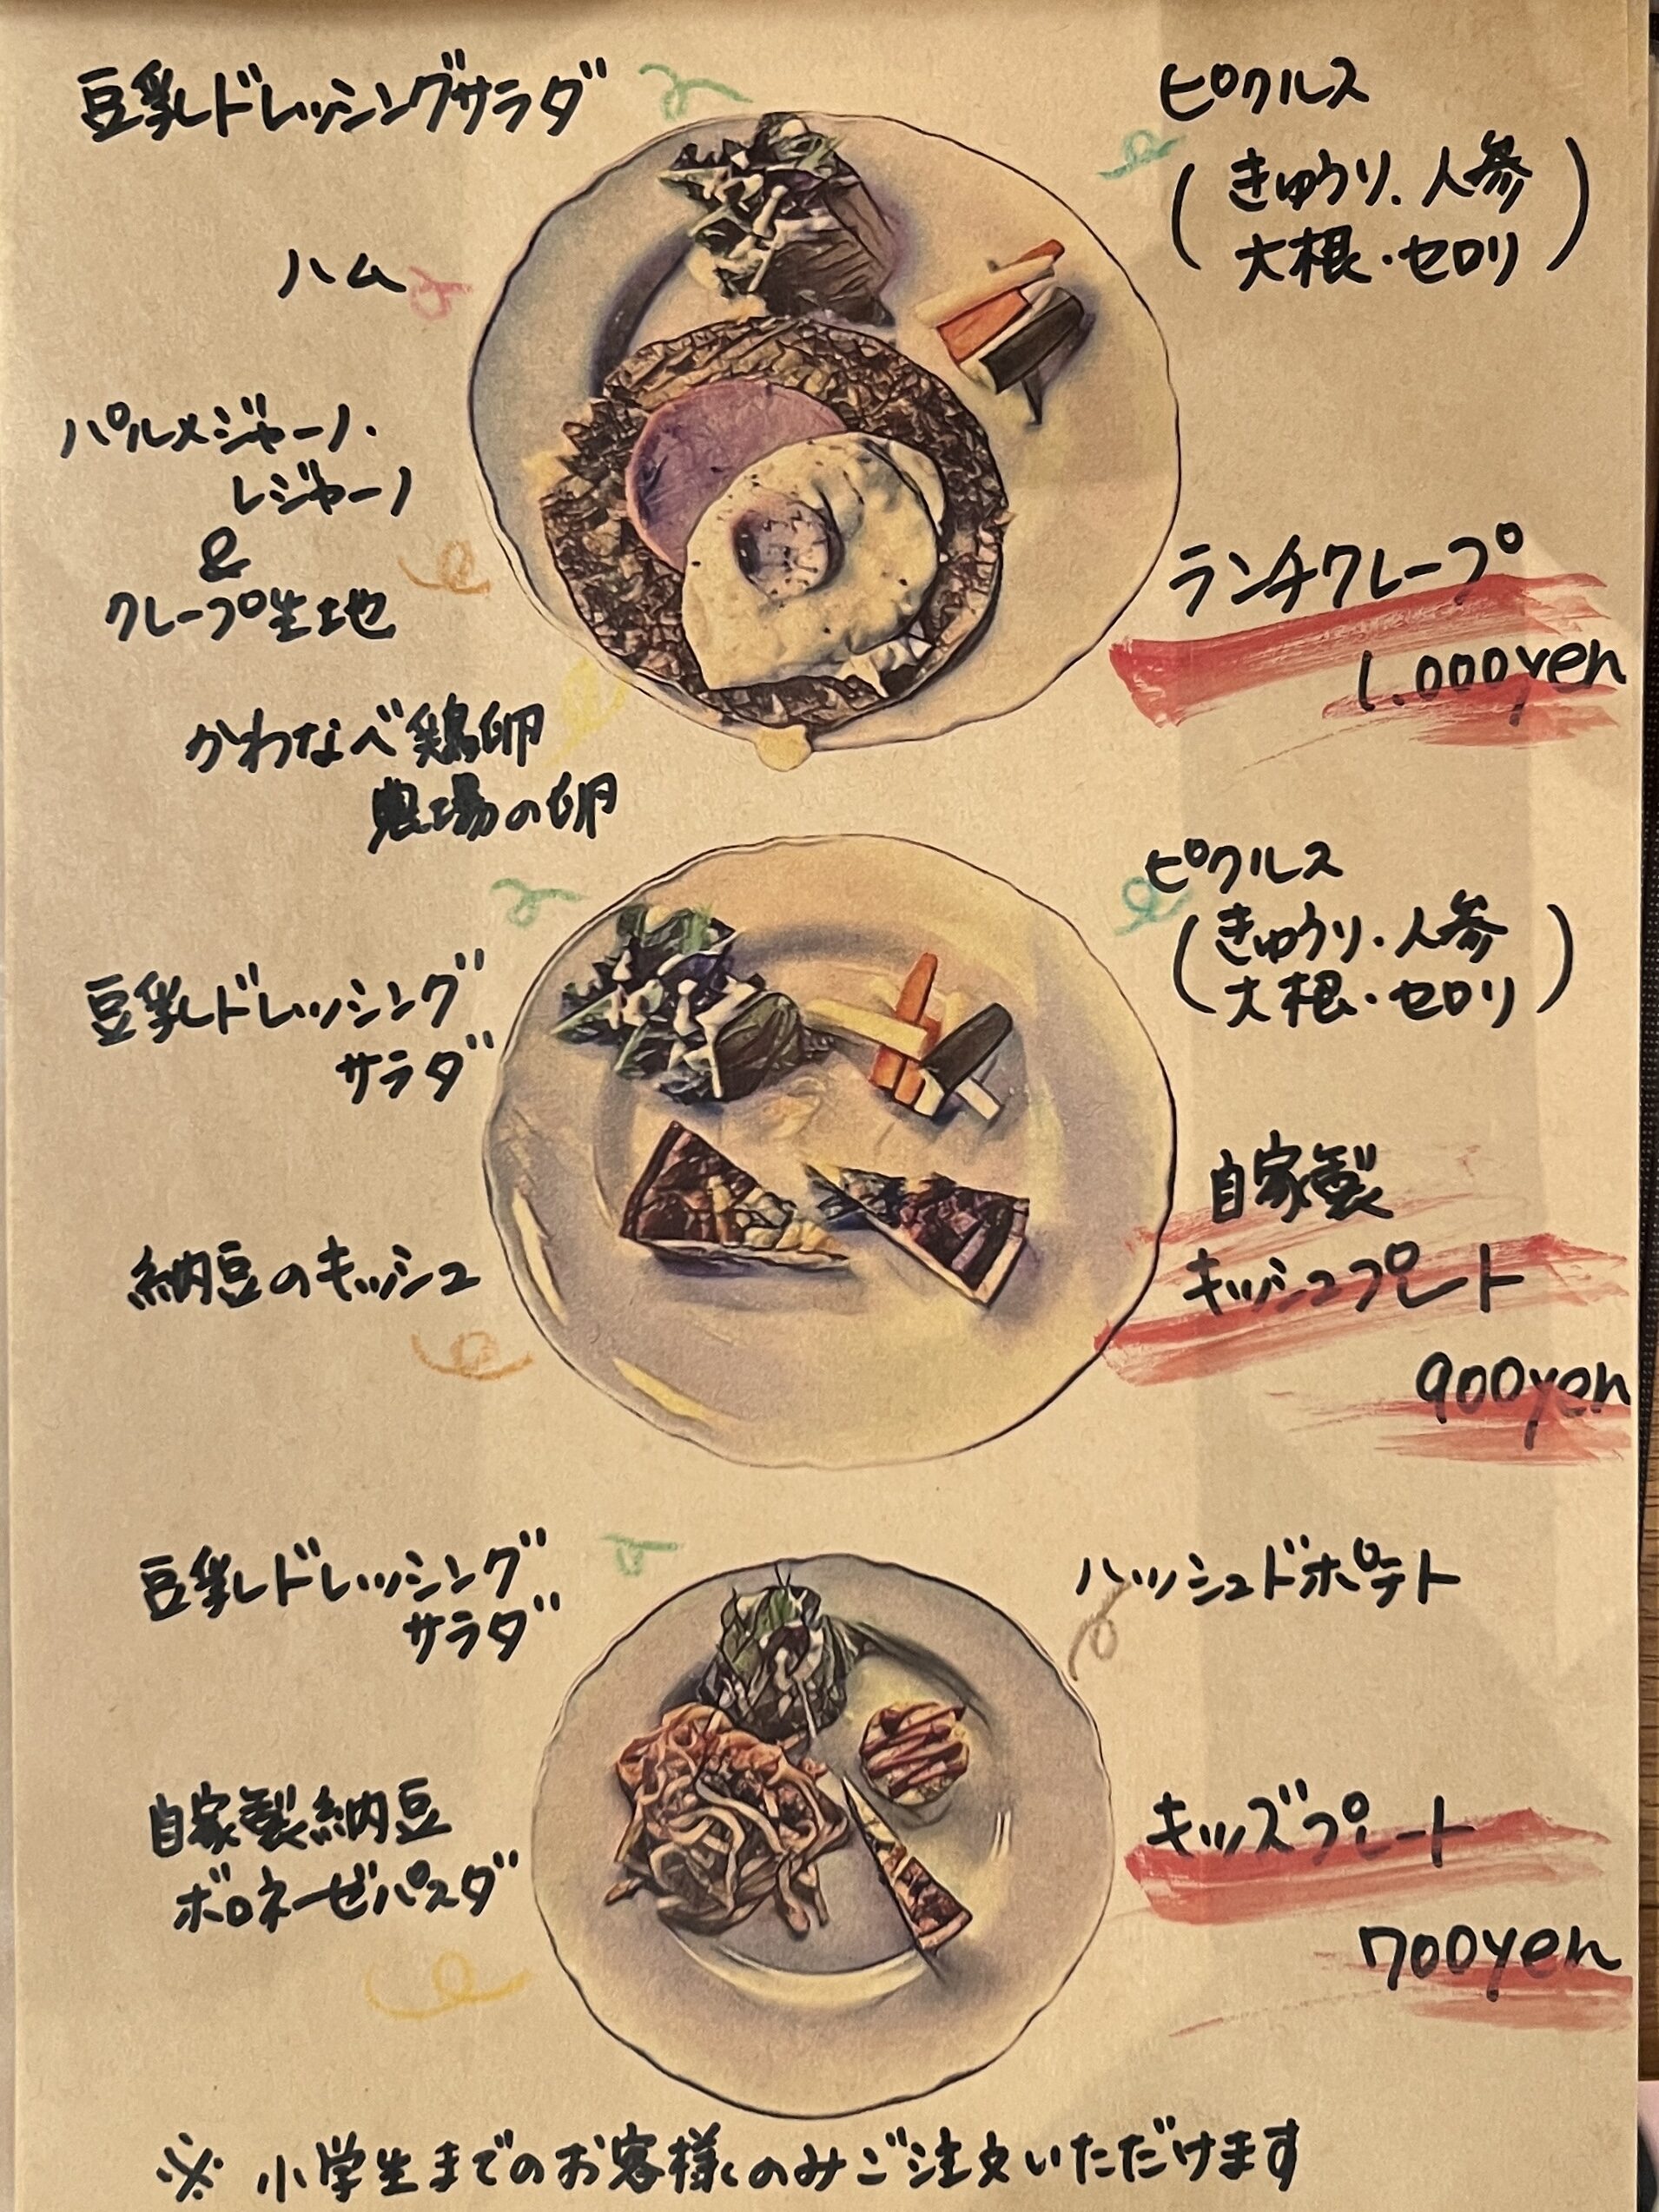 豆乳ドレッシングサラダ
ピクルス
(きゅうり、人参
大根・セロリ)
ハム
パルメジャーノ・
レジャーノ
&
クレープ生地
ランチクレープ
1.000yen
かわなべ鶏卵
農場の卵
ピクルス
(きゅうり・人参
大根・セロリ)
豆乳ドレッシング
サラダ
納豆のキッシュ
自家製
キッシュプレート
900yen
豆乳ドレッシング
サラダ
ハッシュドポテト
自家製納豆
ボロネーゼパスダ
キッズプレート
700yen
※ 小学生までのお客様のみご注文いただけます